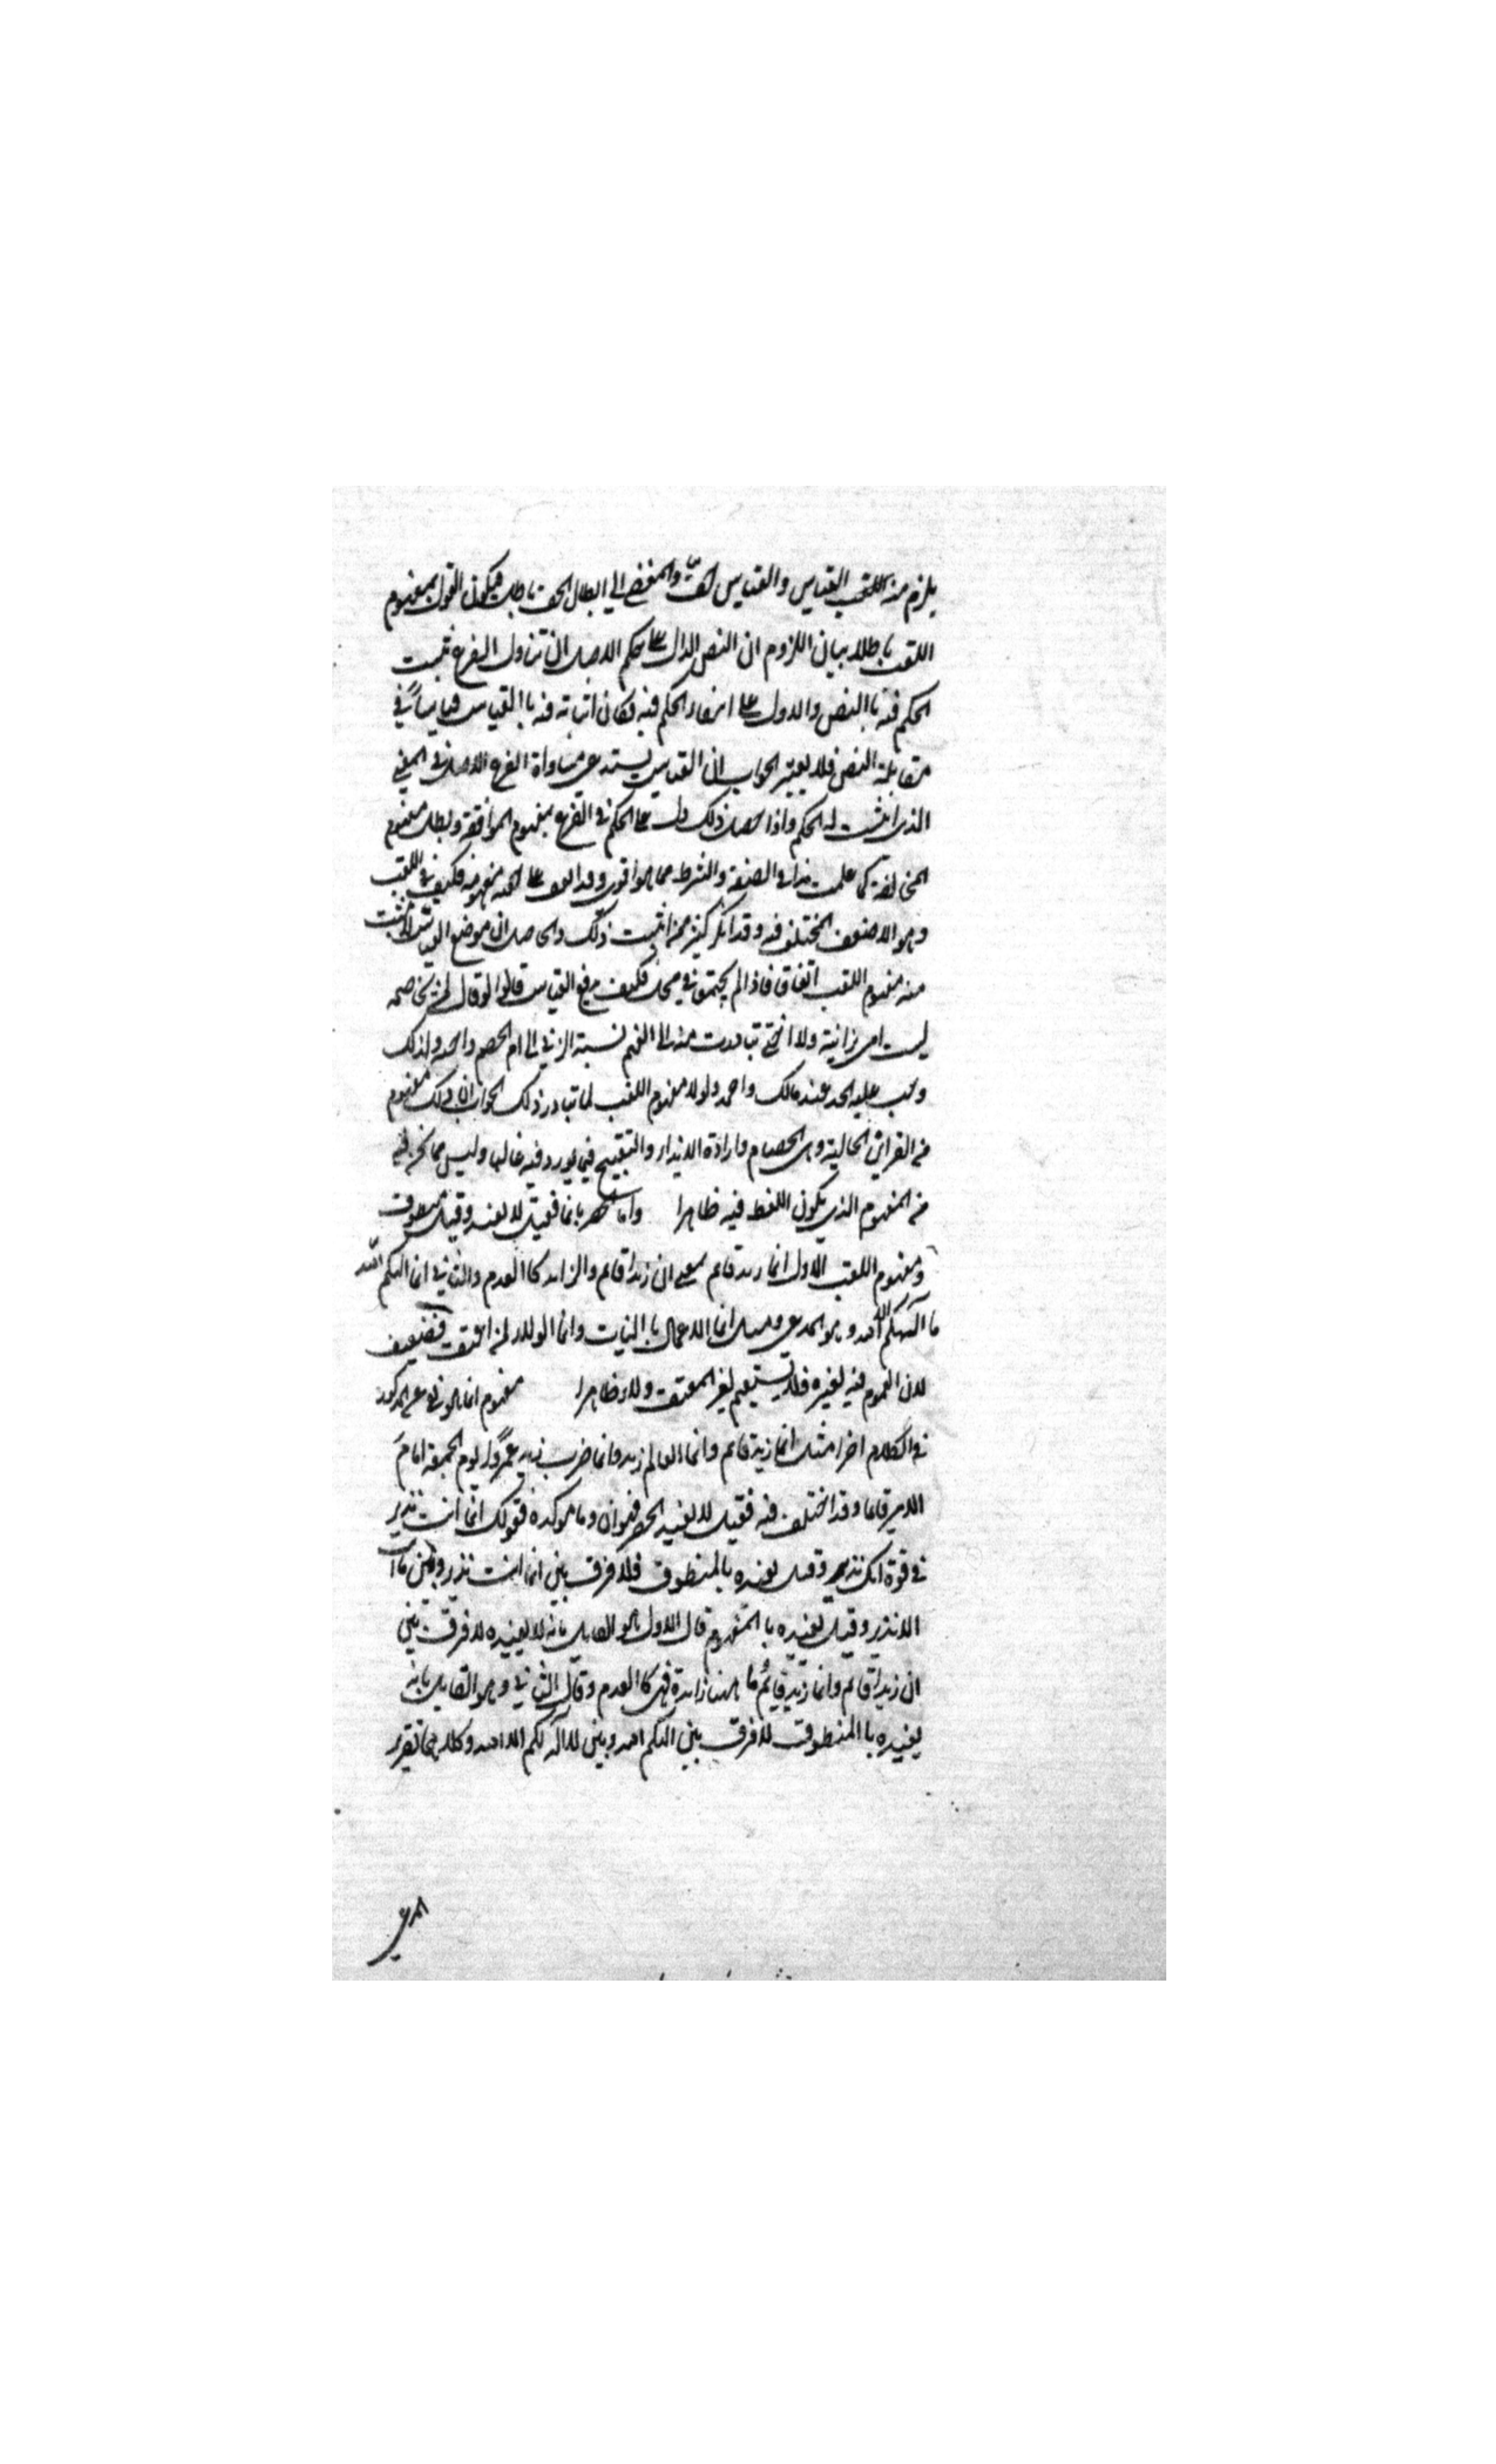 يلزم منه القياس والقياس حق والمفضي الى ابطال الحق باطل فيكون القول بمفهوم
اللقب باطلا بيان اللزوم ان النص الدال على حكم الاصل ان تناول الفرع ثبت
الحكم فيه بالنص والا دل على انتفاء الحكم فيه فكان اثباته فيه باالقياس قياساً في
مقابلة النص فلا يعتبر الجواب ان القياس يستدعي مساواة الفرع الاصل في المعنى
الذي اثبت له الحكم واذا حصل ذلك دل على الحكم في الفرع بمفهوم الموافقة وبطل مفهوم
المخالفة كما علمت هذا في الصفة والشرط مما هو اقوى وقد على فكيف في اللقب
وهو الاضعف المختلف فيه وقد انكر كثير ممن اثبت ذلك والحاصل ان موضع القياس لا يثبت
فيه مفهوم اللقب اتفاقا فاذا لم يجتمعا في محل فكيف يدفع القياس قالوا لو قال لمن يخاصمه
ليست امي بزانية ولا اختي تبادرت منه الى الفهم نسبة الزنى الى ام الخصم واخته ولذلك
وجب عليه الحد عند مالك واحمد ولولا مفهوم اللقب لما تبادر ذلك الجواب ان ذلك مفهوم
من القرائن الحالية وهي الخصام وارادة الايذاء والتقبيح فيما يورد فيه غالبا وليس مما نحن فيه
من المفهوم الذي يكون اللفظ فيه ظاهرا واما الحصر بانما فقيل لا يفيد وقيل منطوق
ومفهوم اللقب الاول انما زيد قائم بمعنى ان زيدا قائم والزايد كاالعدم والثاني انما الهكم الله
ما الهكم الا الله وهو المدعى ومثل انما الاعمال باالنيات وانما الولاء لمن اعتق فضعيف
لان العموم فيه لغيره فلا يستقيم لغير المعتق ولاء ظاهرا مفهوم انما هو نفي غير المذكور
في الكلام اخرا مثل انما زيد قائم وانما العالم زيد وانما ضرب زيد عمروًا يوم الجمعة امام
الامير قائما وقد اختلف فيه فقيل لا يفيد الحصر فهو ان وما موكدة فقولك انما انت نذير
في قوة انك نذير وقيل يفيده بالمنطوق فلا فرق بين انما انت نذير وبين ما انت
الا نذير وقيل يفيده باالمفهوم قال الاول هو القايل بانه لا يفيده لا فرق بين
ان زيدا قائم وانما زيد قائم وما ههنا زايدة فهي كاالعدم وقال الثاني وهو القايل بانه
يفيده باالمنطوق لا فرق بين الهكم الله وبين لا اله لكم الا الله وكلاهما تقرير
المدعى